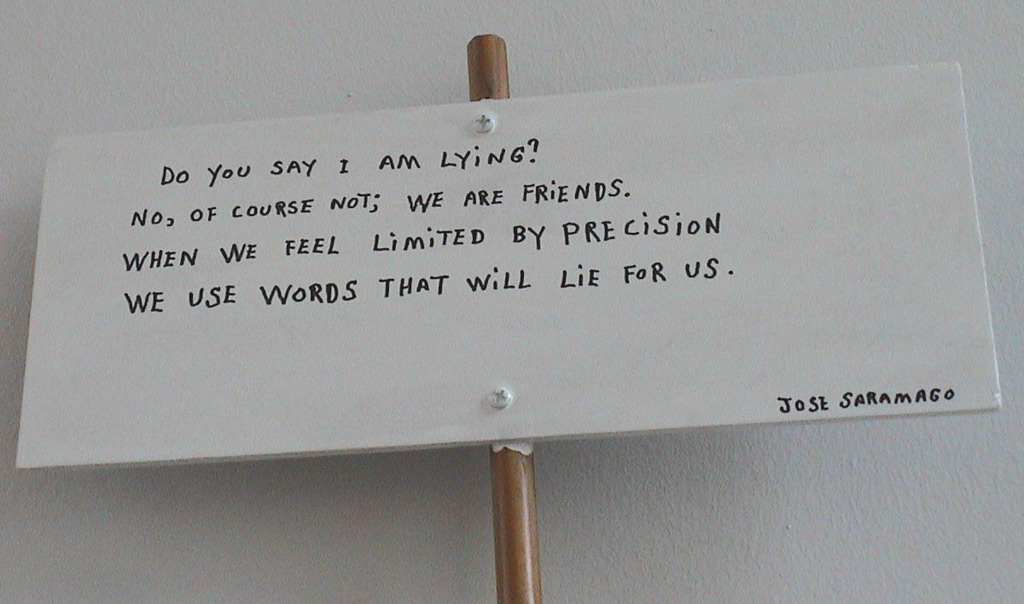 DO YOU SAY I AM LYiNG?
NO, OF COURSE NOT; WE ARE FRiENDS.
WHEN WE FEEL LiMiTED BY PRECiSiON
WE USE WORDS THAT WiLL LiE FOR US.
JOSE SARAMAGO